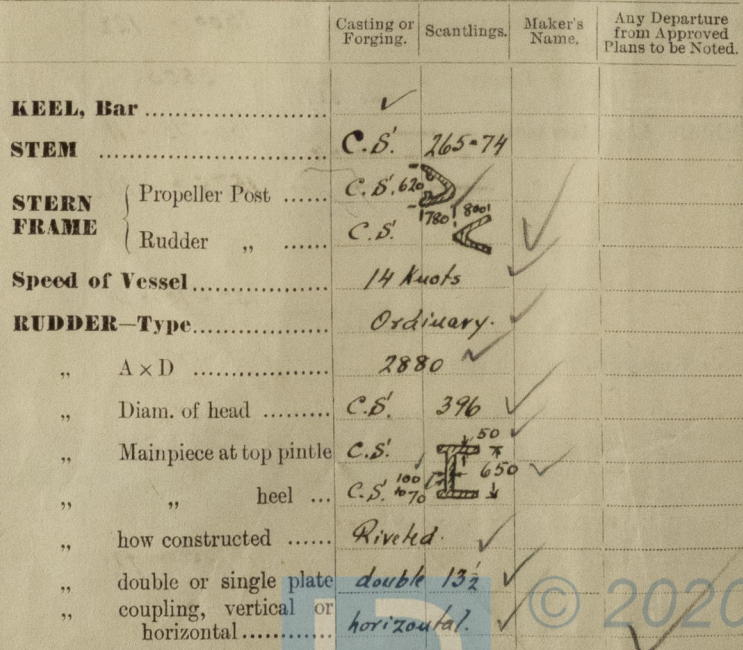 Casting or Forging. Scantlings. Maker's Name. Any Departure from Approved Plans to be Noted.
KEEL, Bar ✓
STEM C.S. 265 × 74
STERN FRAME { Propeller Post C.S. 620 780
Rudder „ C.S. 800
Speed of Vessel 14 Knots ✓
RUDDER—Type Ordinary. ✓
„ A × D 2880 ✓
„ Diam. of head C.S. 396 ✓
„ Mainpiece at top pintle C.S. 50 ✓
„ „ heel C.S. 100 to 70 650 ✓
„ how constructed Riveted. ✓
„ double or single plate double 13½ ✓
„ coupling, vertical or
horizontal horizontal. ✓
© 2020